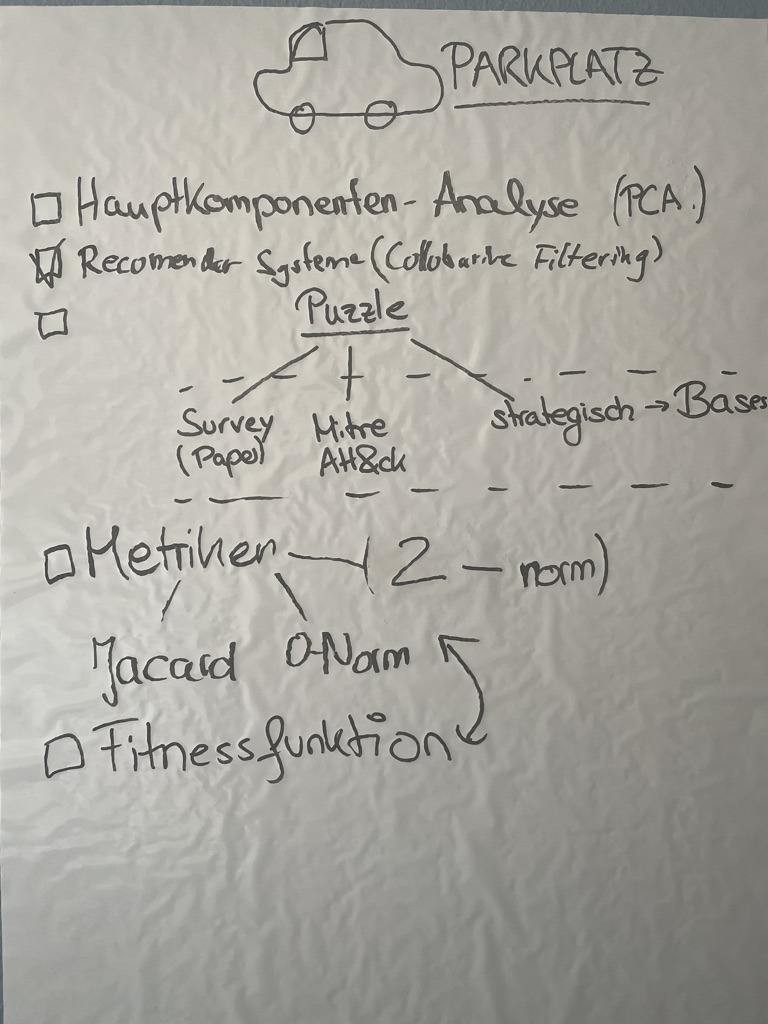 PARKPLATZ
Hauptkomponenten-Analyse (PCA.)
Recomender Systeme (Collobarive Filtering)
Puzzle
Survey
(Paper)
Mitre
Att&ck
strategisch → Bases
Metriken — (2 — norm)
Jacard 0-Norm
Fitnessfunktion